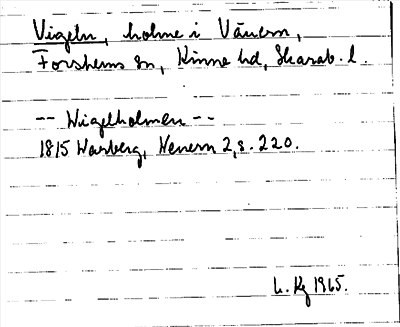 Vigeln, holme i Vänern,
Forshems sn, Kinne hd, Skarab. l.
-- Wigelholmen --
1815 Warberg, Wenern 2, s. 220.
1965.